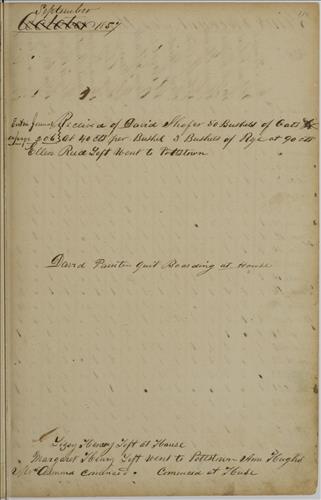 September
October 1857
Received of David Shofer 50 Bushels of Oats
page 206 at 40 cts per Bushel 3 Bushels of Rye at 90 cts
Ellen Reed Left Went to Pottstown
David Painter Quit Boarding at House
Lizzy Henry Left at House
Margaret Henry Left Went to Pottstown Ann Hughs
Commenced at House